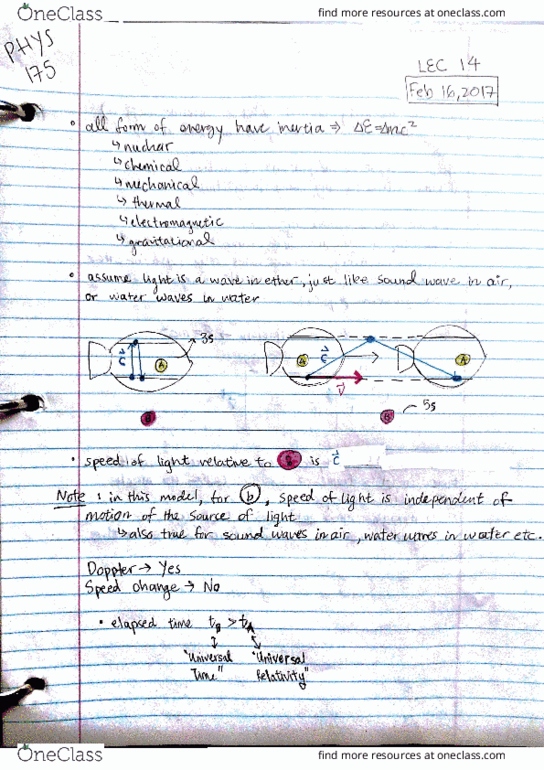 OneClass
find more resources at oneclass.com
PHYS
175
LEC 14
Feb 16, 2017
• all form of energy have inertia ⇒ ΔE=Δmc²
↳ nuclear
↳ chemical
↳ mechanical
↳ thermal
↳ electromagnetic
↳ gravitational
• assume light is a wave in ether, just like sound wave in air,
or water waves in water
c⃗ A 3s
A c⃗ A
v⃗
B B 5s
• speed of light relative to B is c⃗
Note : in this model, for b, speed of light is independent of
motion of the source of light
↳ also true for sound waves in air, water waves in water etc.
Doppler → Yes
Speed change → No
• elapsed time tB > tA
"Universal "Universal
Time" Relativity"
OneClass
find more resources at oneclass.com